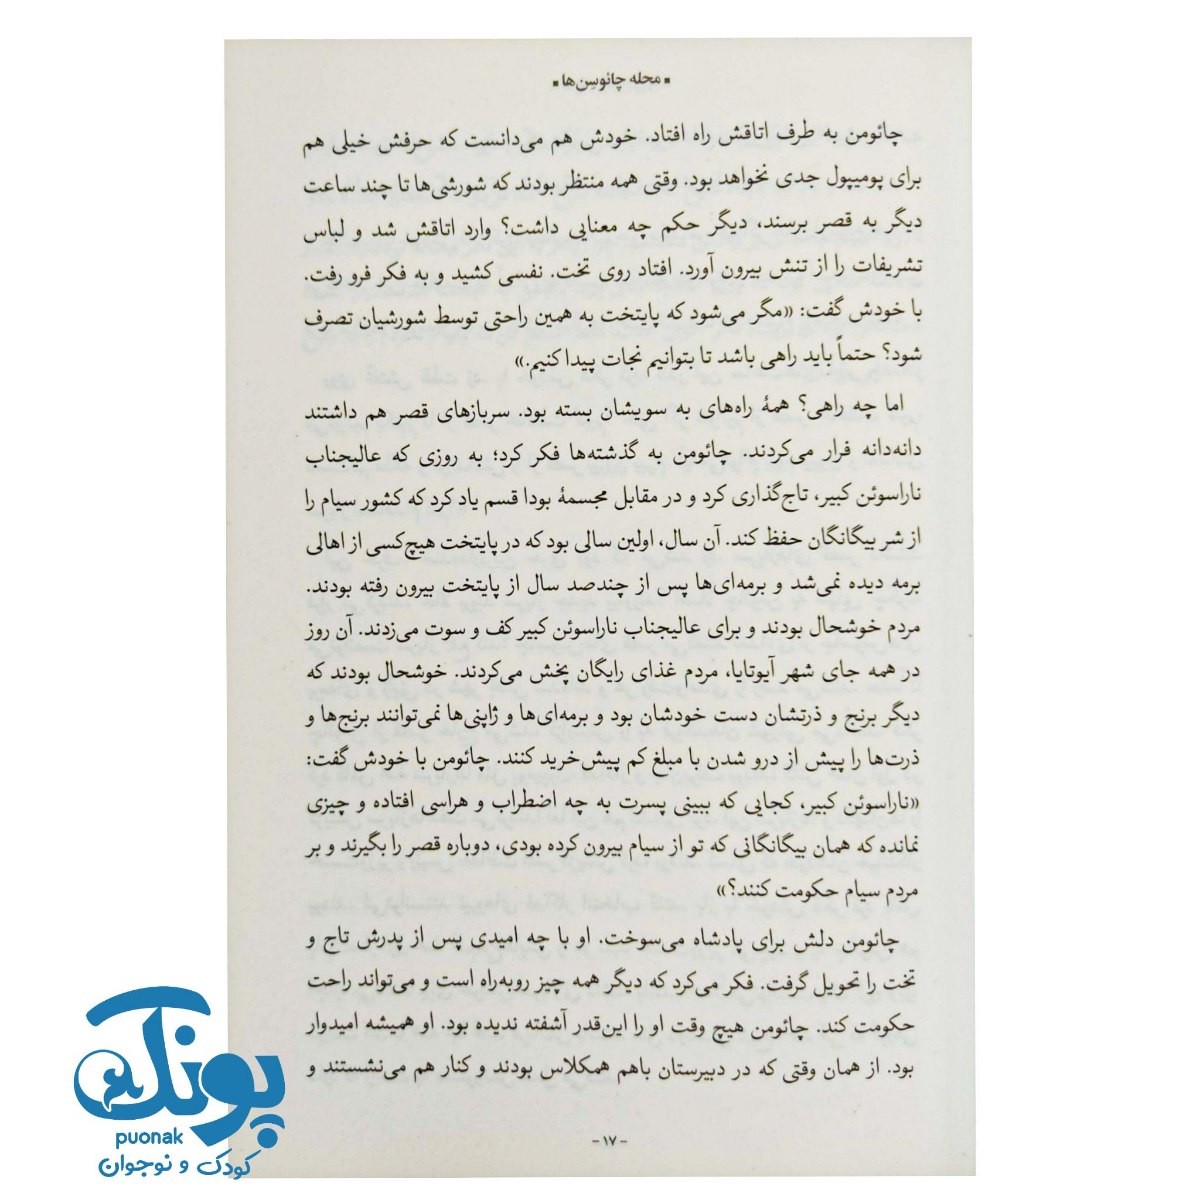 ▪ محله چائوسِن‌ها ▪
چائومن به طرف اتاقش راه افتاد. خودش هم می‌دانست که حرفش خیلی هم
برای پومیپول جدی نخواهد بود. وقتی همه منتظر بودند که شورشی‌ها تا چند ساعت
دیگر به قصر برسند، دیگر حکم چه معنایی داشت؟ وارد اتاقش شد و لباس
تشریفات را از تنش بیرون آورد. افتاد روی تخت. نفسی کشید و به فکر فرو رفت.
با خودش گفت: «مگر می‌شود که پایتخت به همین راحتی توسط شورشیان تصرف
شود؟ حتماً باید راهی باشد تا بتوانیم نجات پیدا کنیم.»
اما چه راهی؟ همهٔ راه‌های به سویشان بسته بود. سربازهای قصر هم داشتند
دانه‌دانه فرار می‌کردند. چائومن به گذشته‌ها فکر کرد؛ به روزی که عالیجناب
ناراسوئن کبیر، تاج‌گذاری کرد و در مقابل مجسمهٔ بودا قسم یاد کرد که کشور سیام را
از شر بیگانگان حفظ کند. آن سال، اولین سالی بود که در پایتخت هیچ‌کسی از اهالی
برمه دیده نمی‌شد و برمه‌ای‌ها پس از چندصد سال از پایتخت بیرون رفته بودند.
مردم خوشحال بودند و برای عالیجناب ناراسوئن کبیر کف و سوت می‌زدند. آن روز
در همه جای شهر آیوتایا، مردم غذای رایگان پخش می‌کردند. خوشحال بودند که
دیگر برنج و ذرتشان دست خودشان بود و برمه‌ای‌ها و ژاپنی‌ها نمی‌توانند برنج‌ها و
ذرت‌ها را پیش از درو شدن با مبلغ کم پیش‌خرید کنند. چائومن با خودش گفت:
«ناراسوئن کبیر، کجایی که ببینی پسرت به چه اضطراب و هراسی افتاده و چیزی
نمانده که همان بیگانگانی که تو از سیام بیرون کرده بودی، دوباره قصر را بگیرند و بر
مردم سیام حکومت کنند؟»
چائومن دلش برای پادشاه می‌سوخت. او با چه امیدی پس از پدرش تاج و
تخت را تحویل گرفت. فکر می‌کرد که دیگر همه چیز روبه‌راه است و می‌تواند راحت
حکومت کند. چائومن هیچ وقت او را این‌قدر آشفته ندیده بود. او همیشه امیدوار
بود. از همان وقتی که در دبیرستان باهم همکلاس بودند و کنار هم می‌نشستند و
- ۱۷ -
پونک
puonak
کودک و نوجوان